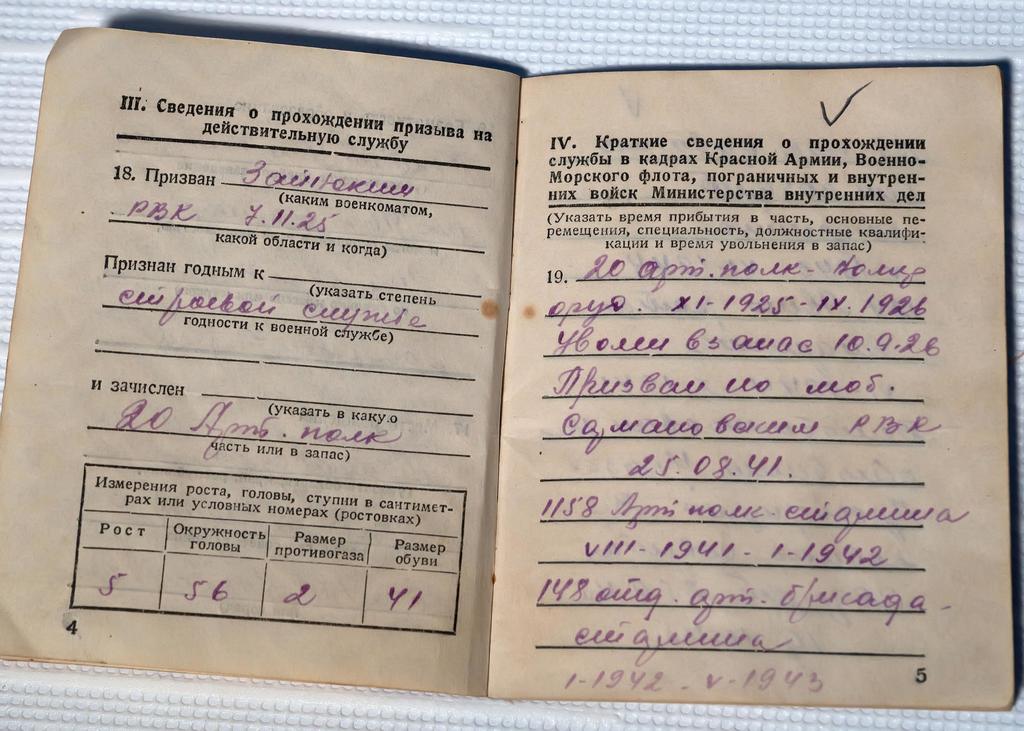 III. Сведения о прохождении призыва на
действительную службу
18. Призван
(каким военкоматом,
РВК 7.11.25
какой области и когда)
Признан годным к
(указать степень
строевой службе
годности к военной службе)
и зачислен
(указать в каку.о
20 Арт. полк
часть или в запас)
Измерения роста, головы, ступни в сантимет-
рах или условных номерах (ростовках)
Рост Окружность головы Размер противогаза Размер обуви
5 56 2 41
4
IV. Краткие сведения о прохождении
службы в кадрах Красной Армии, Военно-
Морского флота, пограничных и внутрен-
них войск Министерства внутренних дел
(Указать время прибытия в часть, основные пе-
ремещения, специальность, должностные квалифи-
кации и время увольнения в запас)
19. 20 арт. полк -
XI-1925-IX.1926
Уволен в запас 10.9.26
Призван по моб.
РВК
25.08.41.
1158 Арт полк старшина
VIII-1941-I-1942
148 отд. арт. бригада -
старшина
I-1942-V-1943
5